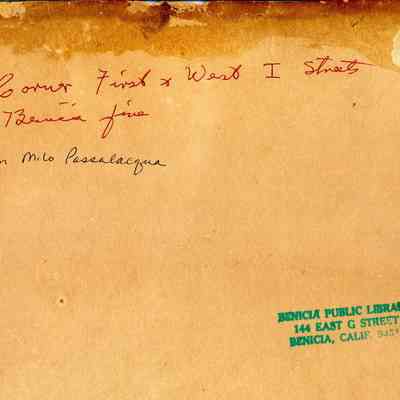 Corner First & West I Streets
Benicia fire
Milo Passalacqua
BENICIA PUBLIC LIBRA
144 EAST G STREET
BENICIA, CALIF.